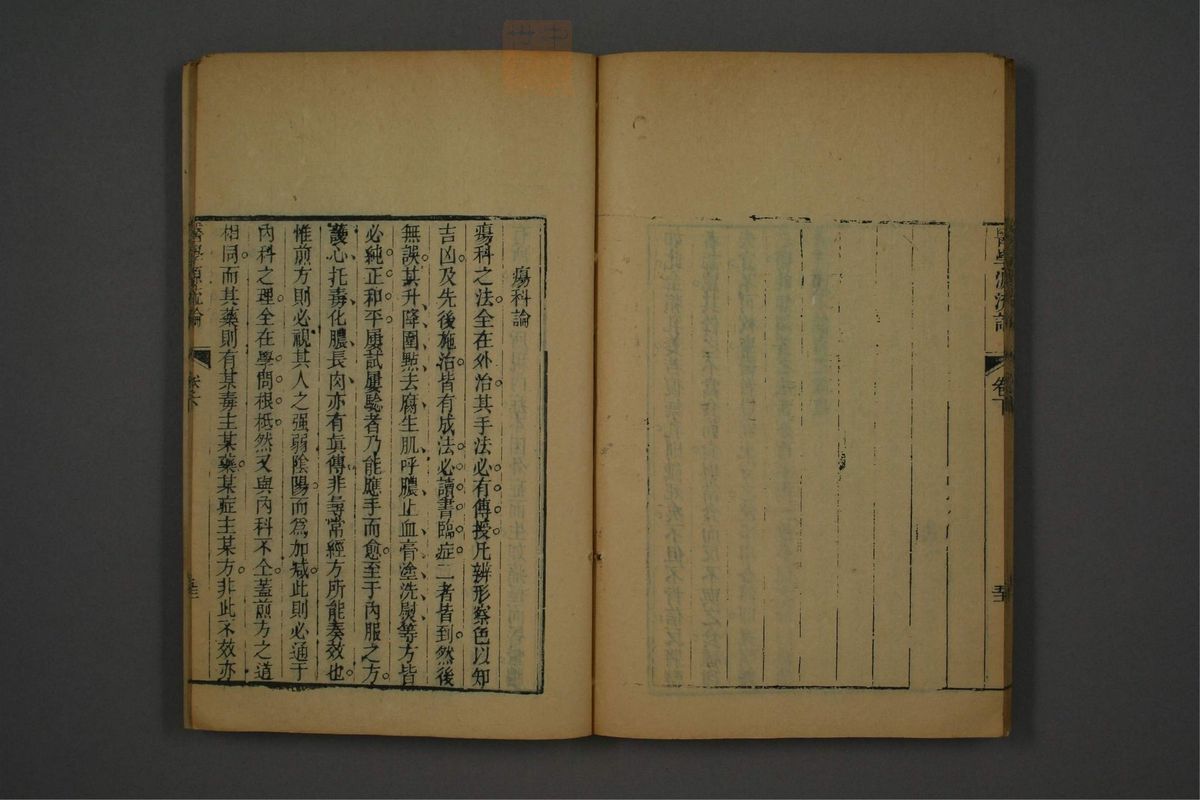 醫學源流論
卷下
瘍科論
瘍科之法全在外治其手法必有傳授凡辨形察色以知
吉凶及先後施治皆有成法必讀書臨症二者皆到然後
無誤其升降圍點去腐生肌呼膿止血膏塗洗熨等方皆
必純正和平屢試屢驗者乃能應手而愈至于內服之方
護心托毒化膿長肉亦有眞傳非尋常經方所能奏效也
惟煎方則必視其人之强弱陰陽而爲加減此則必通于
內科之理全在學問根柢然又與內科不仝蓋煎方之道
相同而其藥則有某毒主某藥某症主某方非此不效亦
醫學源流論